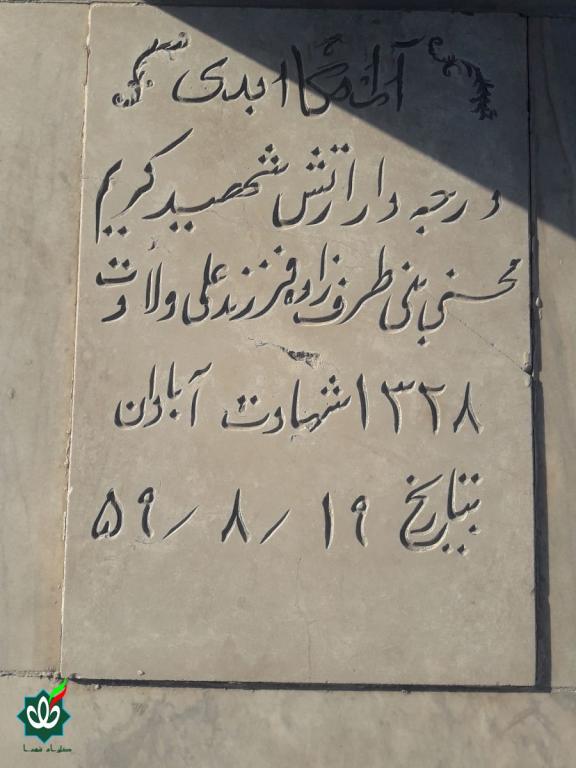 آرامگاه ابدی
درجه دار ارتش شهید کریم
محسنی بنی طرف زاده فرزند علی ولادت
۱۳۲۸ شهادت آبادان
بتاریخ ۱۹/۸/۵۹